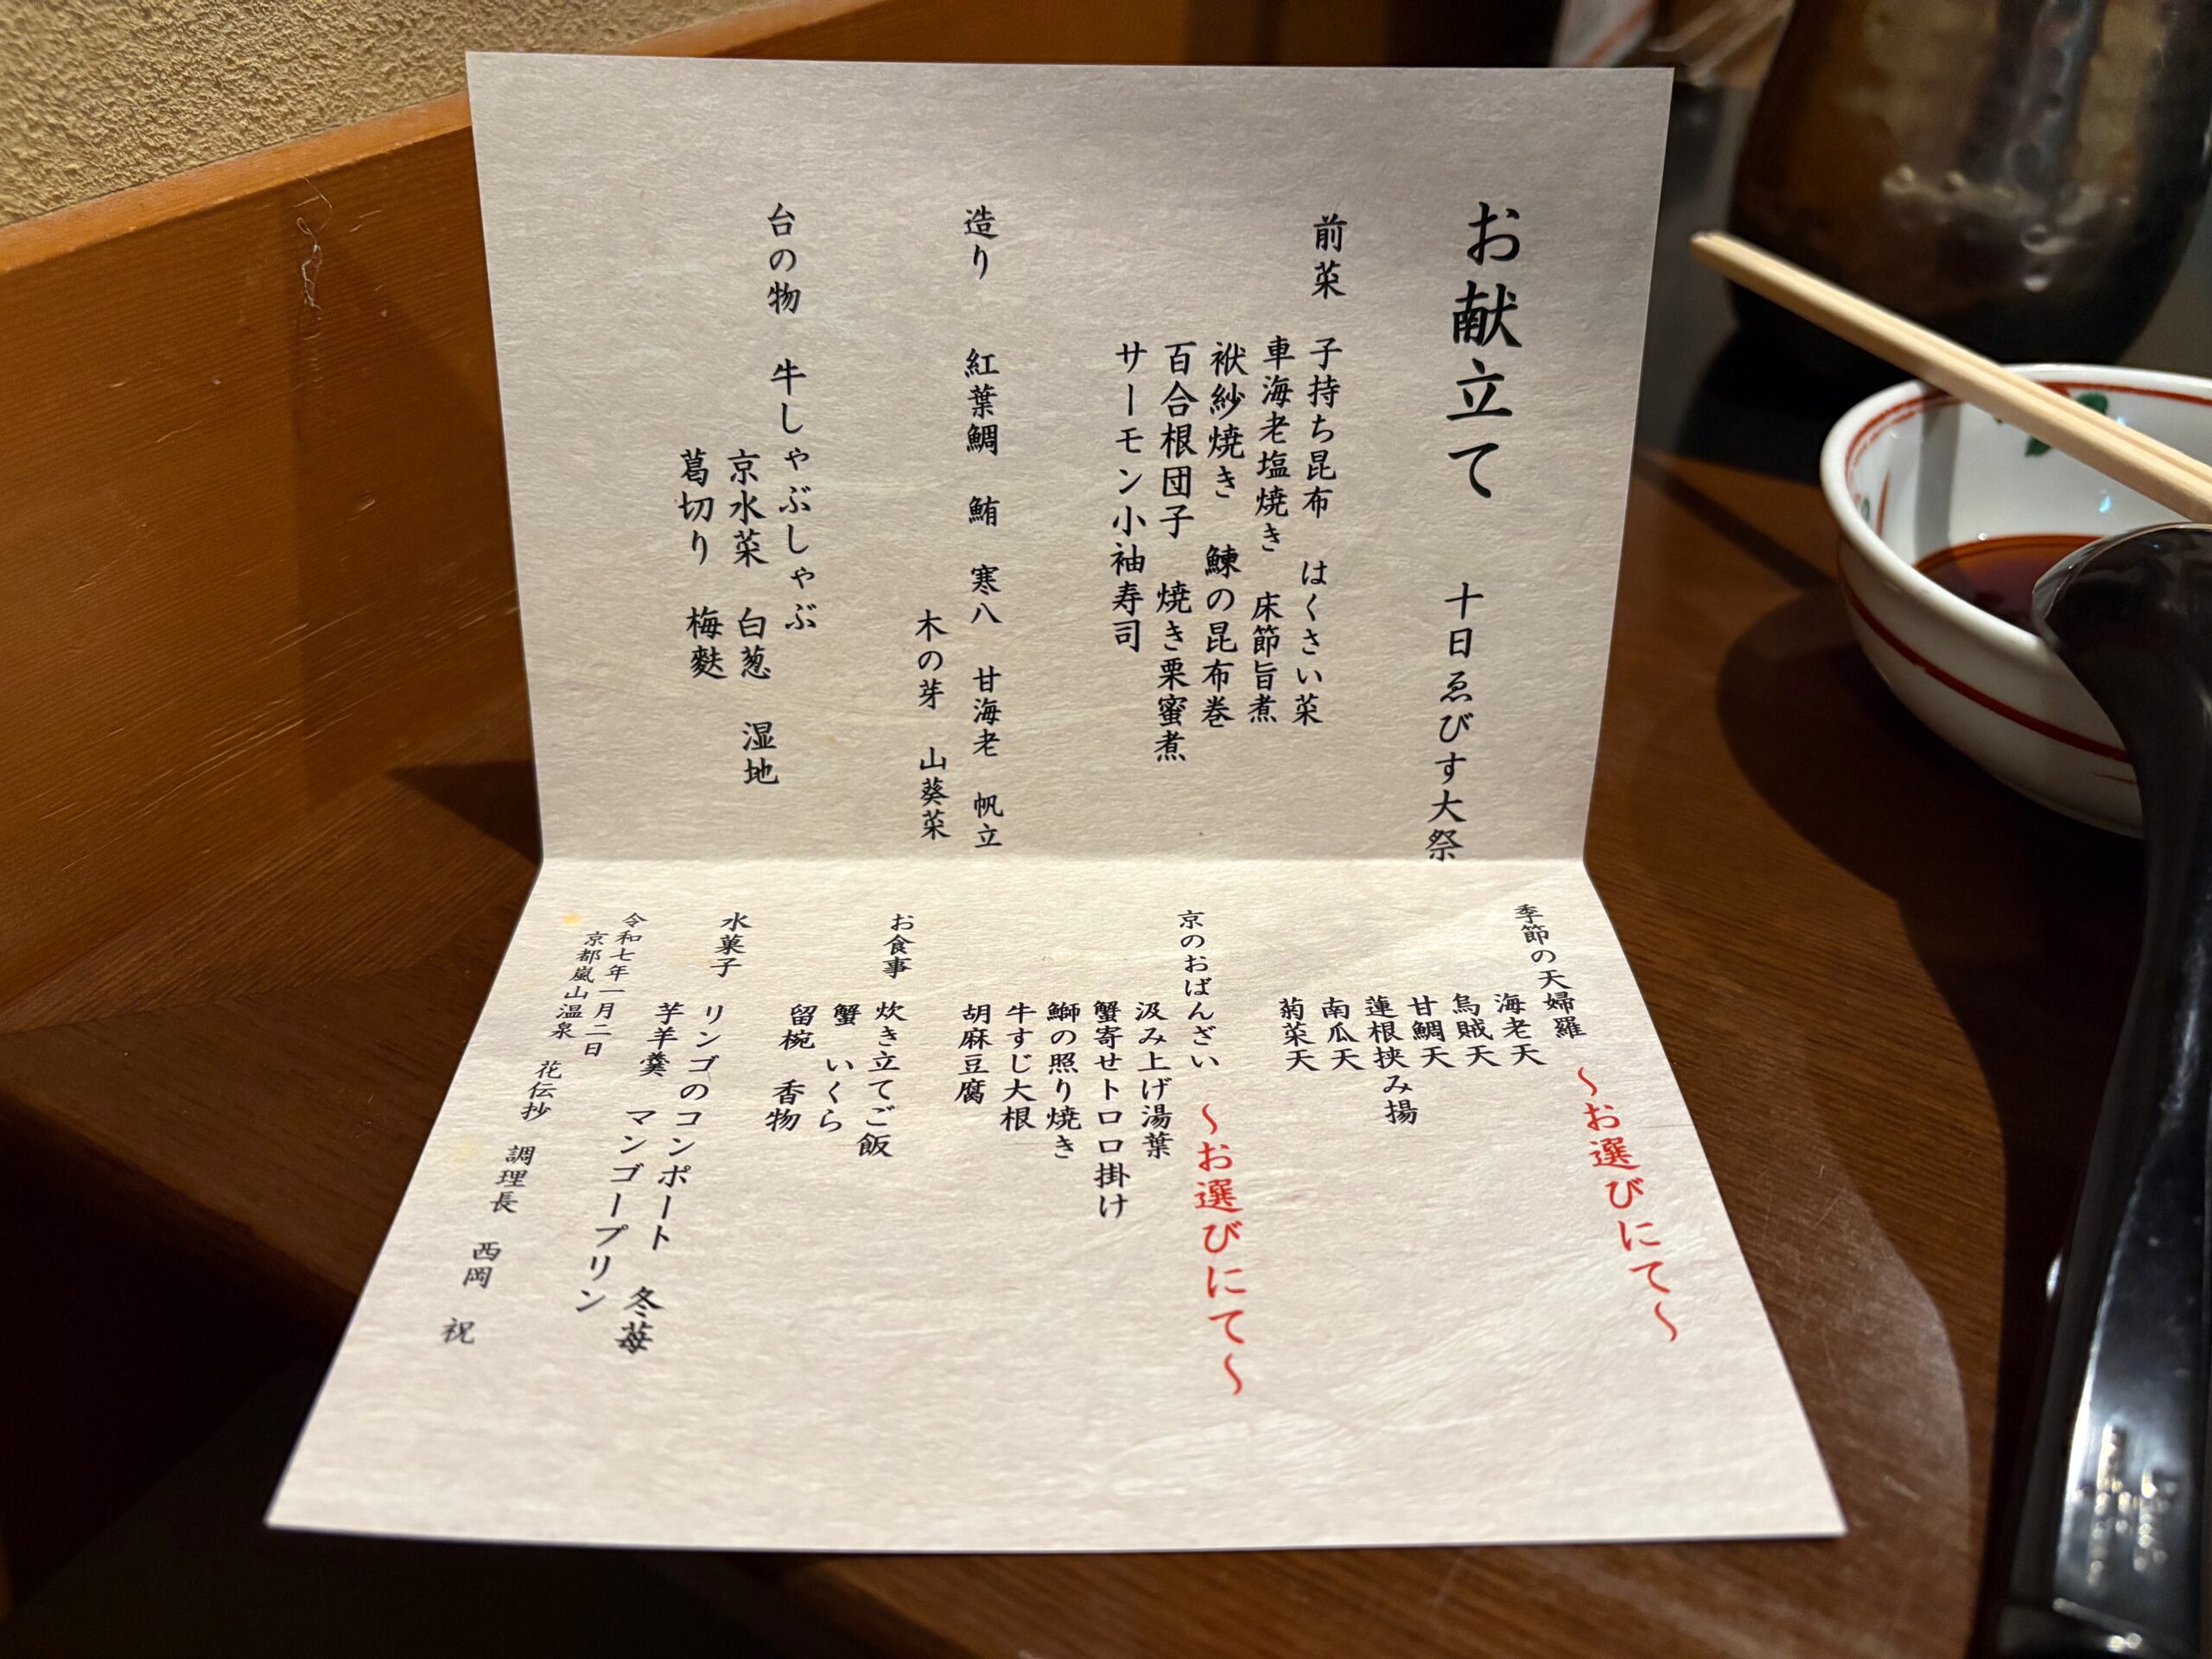 お献立て　十日ゑびす大祭
前菜　子持ち昆布　はくさい菜
車海老塩焼き　床節旨煮
袱紗焼き　鰊の昆布巻
百合根団子　焼き栗蜜煮
サーモン小袖寿司
造り　紅葉鯛　鮪　寒八　甘海老　帆立
木の芽　山葵菜
台の物　牛しゃぶしゃぶ
京水菜　白葱　湿地
葛切り　梅麩
季節の天婦羅　～お選びにて～
海老天
烏賊天
甘鯛天
蓮根挟み揚
南瓜天
菊菜天
京のおばんざい　～お選びにて～
汲み上げ湯葉
蟹寄せトロロ掛け
鰤の照り焼き
牛すじ大根
胡麻豆腐
お食事　炊き立てご飯
蟹　いくら
留椀　香物
水菓子　リンゴのコンポート　冬苺
芋羊羹　マンゴープリン
令和七年一月二日
京都嵐山温泉　花伝抄　調理長　西岡　祝